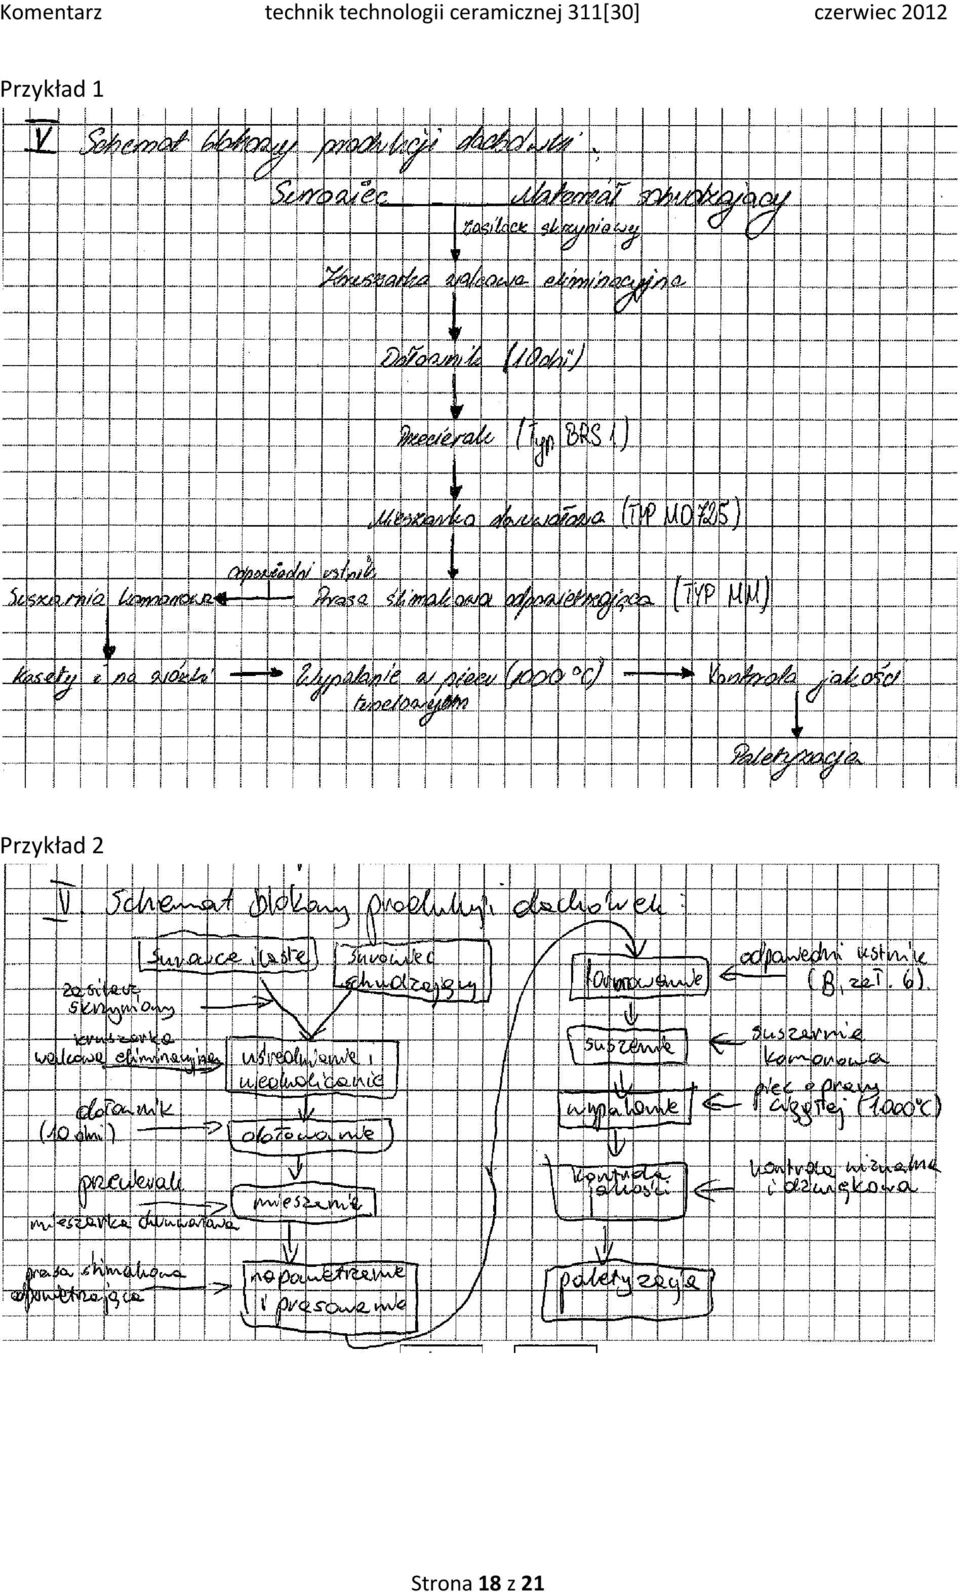 Komentarz technik technologii ceramicznej 311[30] czerwiec 2012
Przykład 1
V Schemat blokowy produkcji dachówki:
Surowiec Materiał schudzający
zasilacz skrzyniowy
Kruszarka walcowa eliminacyjna
Dołownik (10dni)
Przecierak (Typ BRS 1)
Mieszarka dwuwałowa (TYP MD 725)
odpowiedni ustnik
Suszarnia komorowa Prasa ślimakowa odpowietrzająca (TYP MM)
Kasety i na wózki Wypalanie w piecu (1000 °C) Kontrola jakości
tunelowym
Paletyzacja
Przykład 2
V. Schemat blokowy produkcji dachówek:
Surowce ilaste
surowiec schudzający
zasilacz skrzyniowy
kruszarka walcowa eliminacyjna
uśrednianie i ujednolicanie
dołownik (10 dni)
dołowanie
przecierak
mieszarka dwuwałowa
mieszanie
prasa ślimakowa odpowietrzająca
i prasowanie
formowanie
odpowiedni ustnik (B, zał. 6).
suszenie
suszarnia komorowa
wypalanie
piec o pracy ciągłej (1000°C)
kontrola jakości
kontrola wizualna i dźwiękowa
paletyzacja
Strona 18 z 21